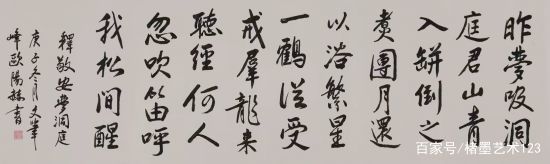 昨夢吸洞
庭君山青
入缾倒之
煮團月還
以浴繁星
一鶴從受
戒羣龍來
聽經何人
忽吹笛呼
我松間醒
釋敬安夢洞庭
庚子冬月文華
峰歐陽書
百家号/楮墨艺术123